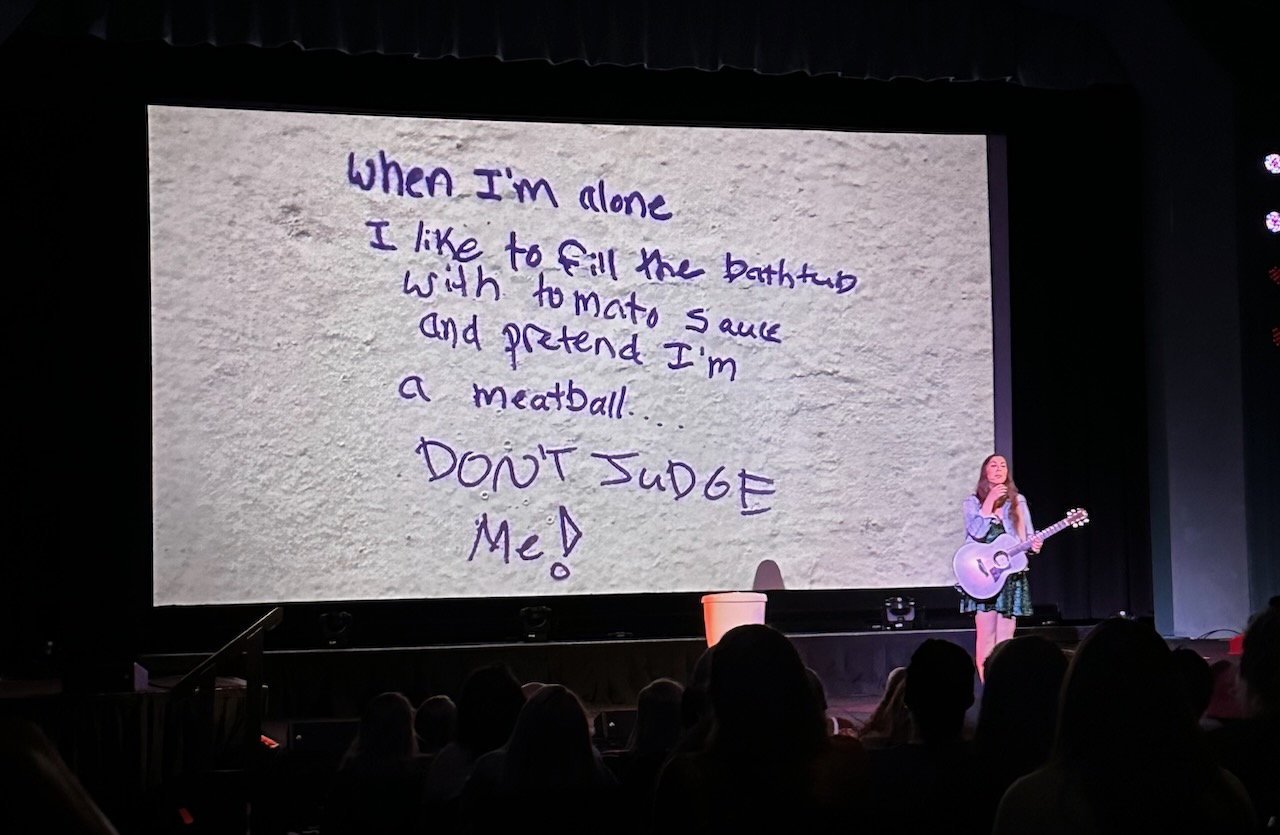 when I'm alone
I like to fill the bathtub
with tomato sauce
and pretend I'm
a meatball....
DON'T JUDGE
Me!